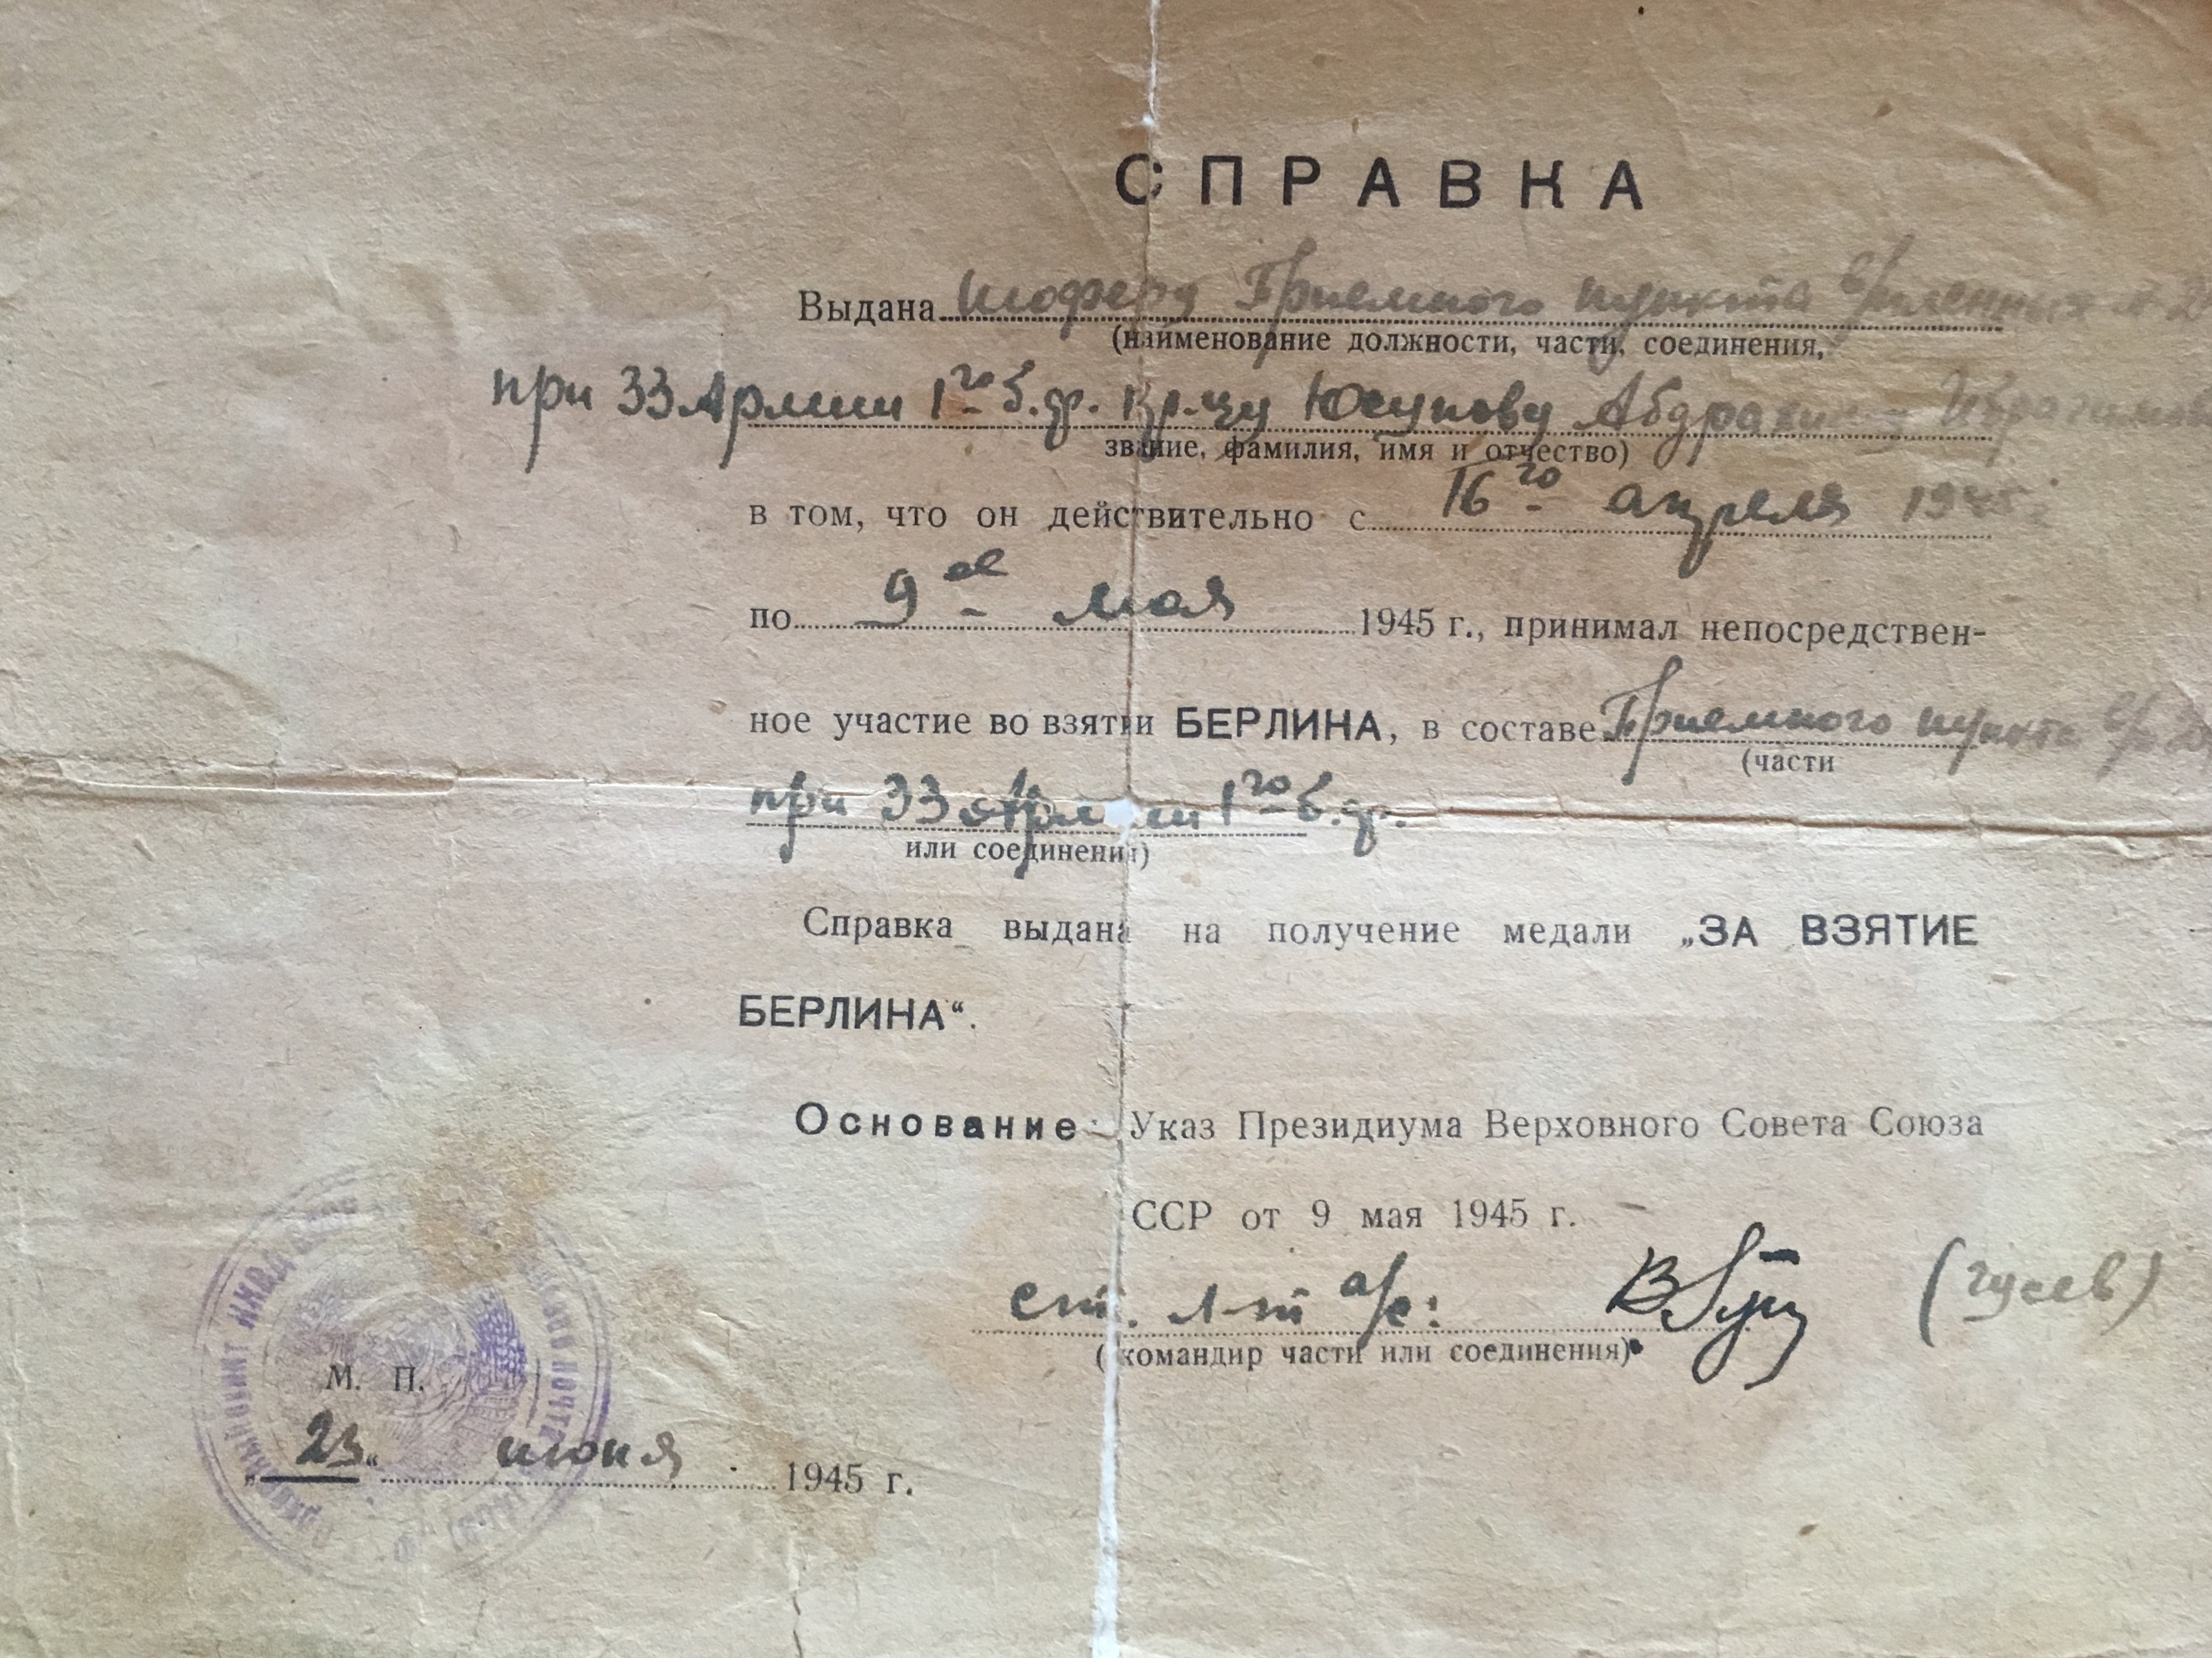 СПРАВКА
Выдана шоферу Приемного пункта в/пленных
(наименование должности, части, соединения,
при 33 Армии 1го б.ф. кр-цу Юсупову
звание, фамилия, имя и отчество)
в том, что он действительно с 16го апреля 1945
по 9ое мая 1945 г., принимал непосредствен-
ное участие во взятии БЕРЛИНА, в составе Приемного пункта
(части
при 33 Армии 1го б.ф.
или соединения)
Справка выдана на получение медали „ЗА ВЗЯТИЕ
БЕРЛИНА“.
Основание: Указ Президиума Верховного Совета Союза
ССР от 9 мая 1945 г.
ст. л-т а/с: (гусев)
(командир части или соединения)
М. П.
„23“ июня 1945 г.
НКВД